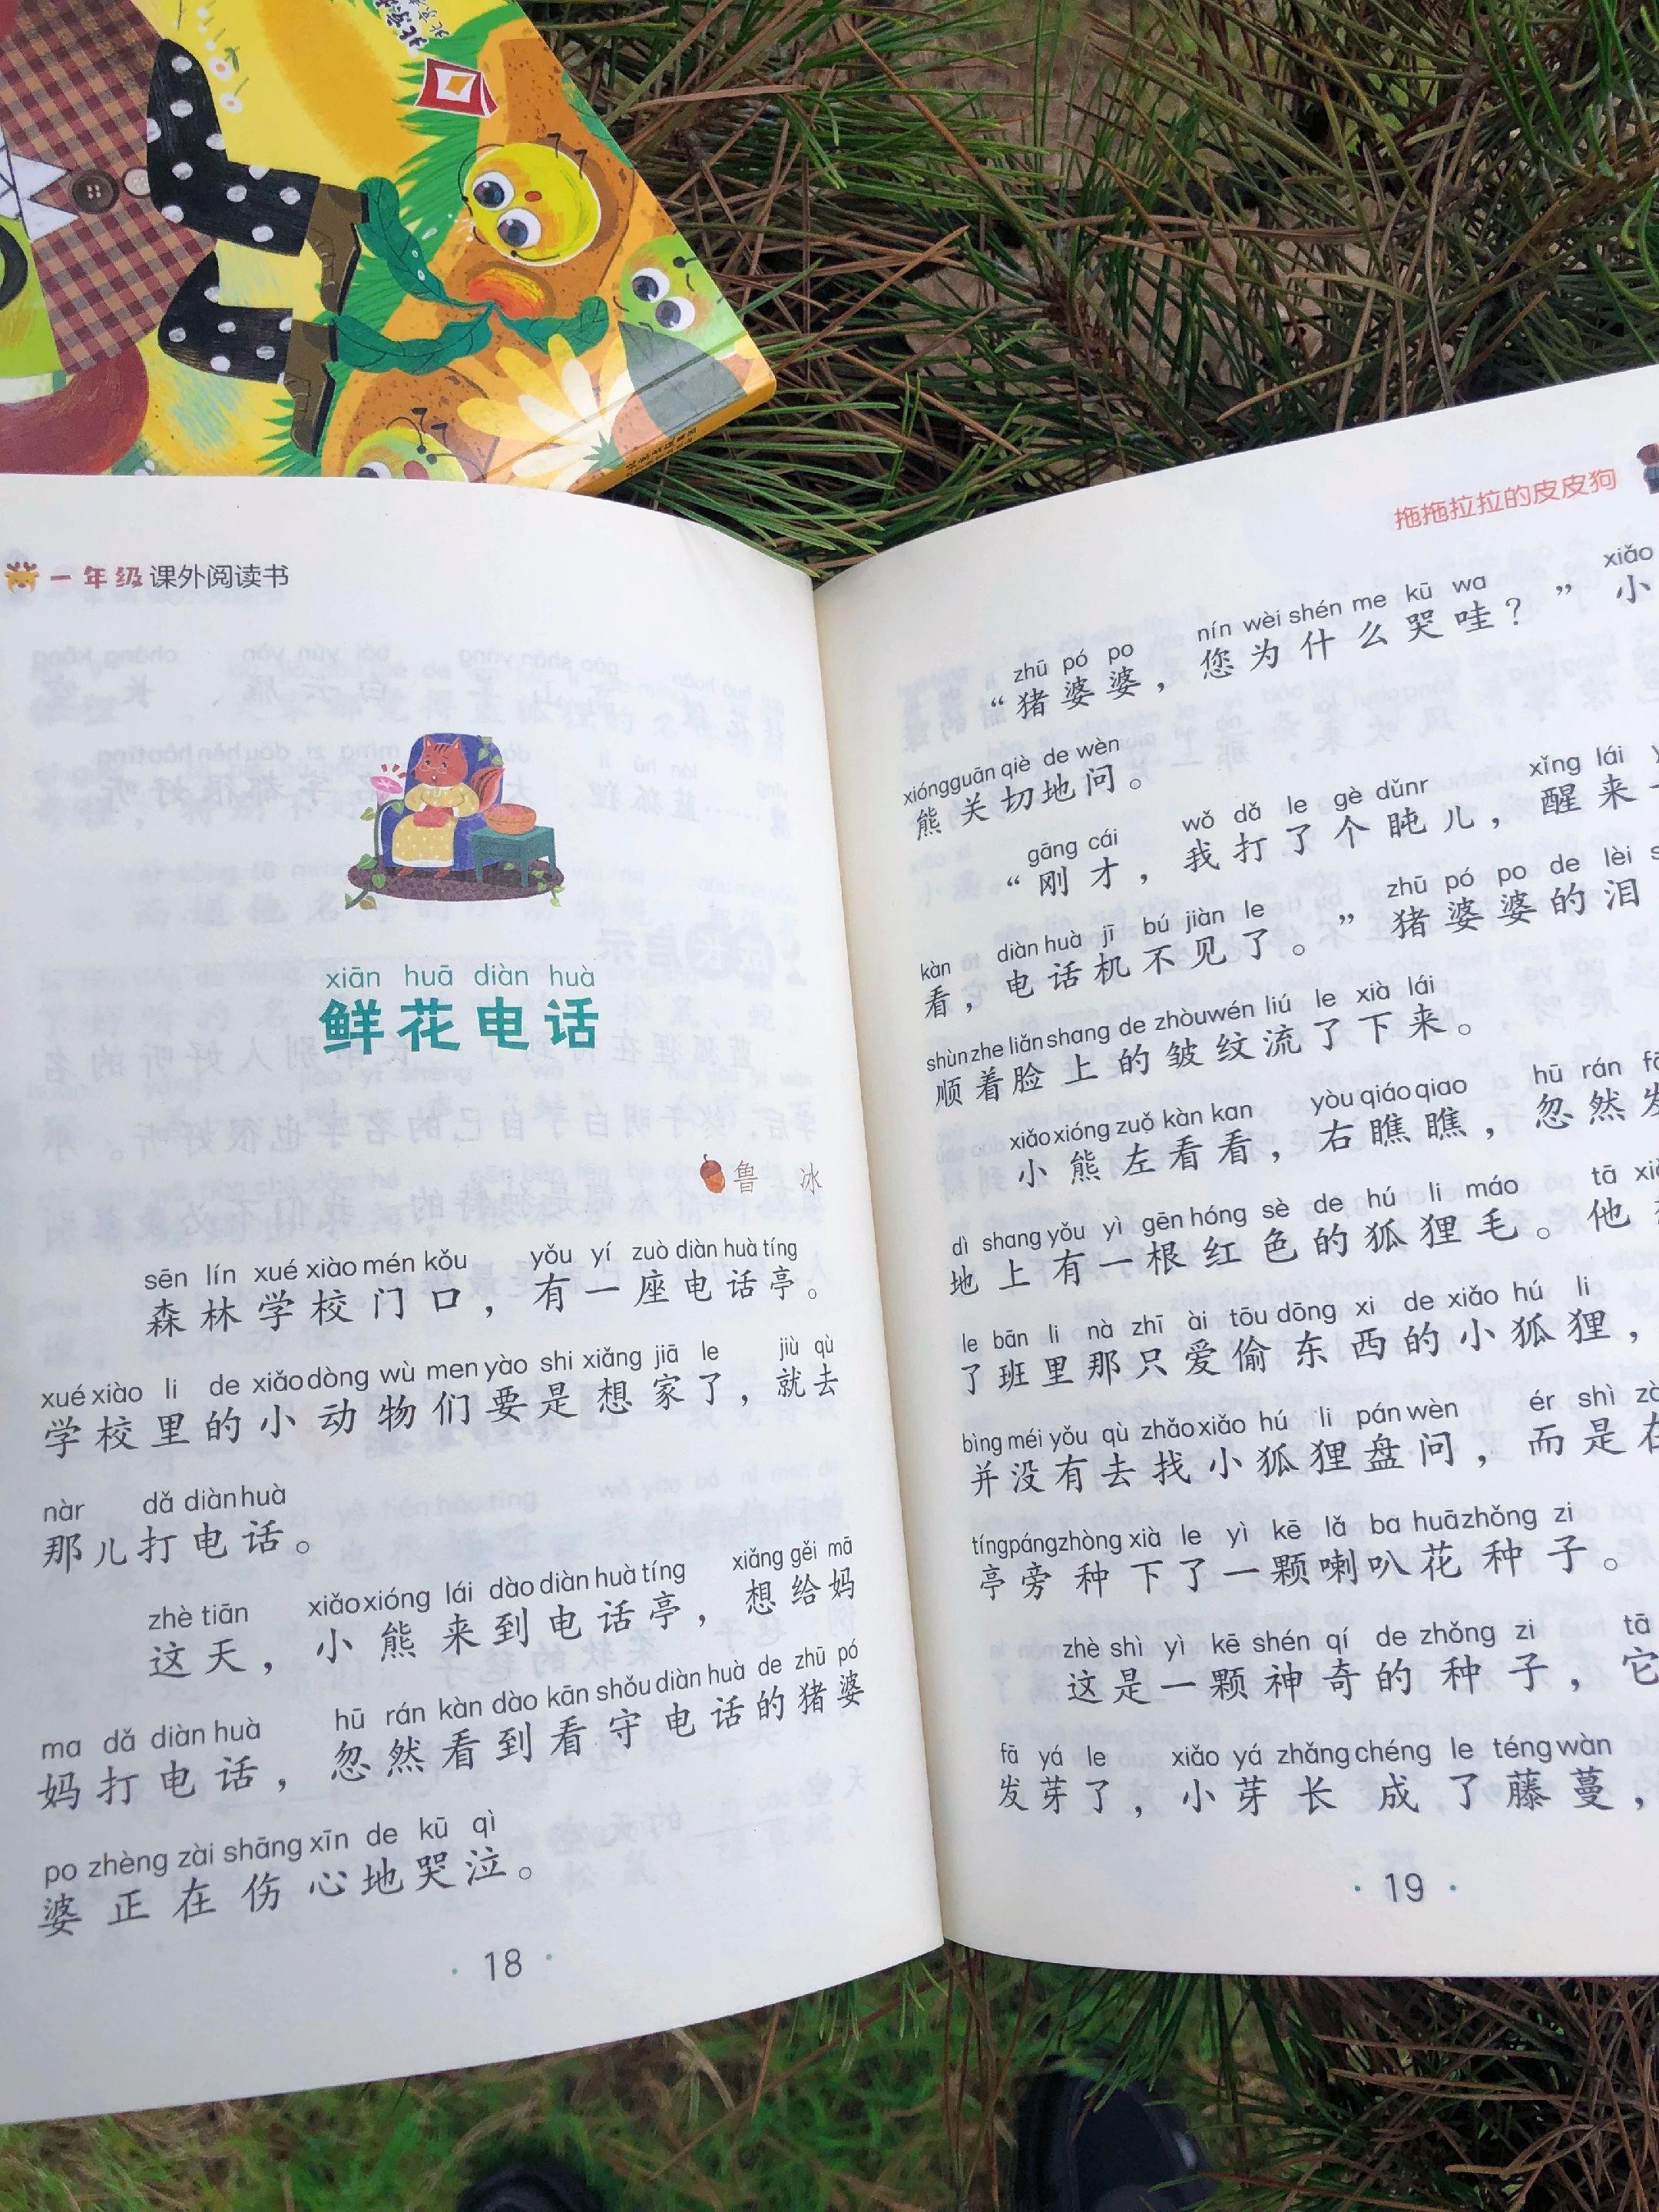 一年级 课外阅读书
xiān huā diàn huà
鲜花电话
鲁 冰
sēn lín xué xiào mén kǒu yǒu yí zuò diàn huà tíng
森林学校门口，有一座电话亭。
xué xiào li de xiǎo dòng wù men yào shi xiǎng jiā le jiù qù
学校里的小动物们要是想家了，就去
nàr dǎ diàn huà
那儿打电话。
zhè tiān xiǎo xióng lái dào diàn huà tíng xiǎng gěi mā
这天，小熊来到电话亭，想给妈
ma dǎ diàn huà hū rán kàn dào kān shǒu diàn huà de zhū pó
妈打电话，忽然看到看守电话的猪婆
po zhèng zài shāng xīn de kū qì
婆正在伤心地哭泣。
18
拖拖拉拉的皮皮狗
zhū pó po nín wèi shén me kū wa xiǎo
“猪婆婆，您为什么哭哇？”小
xióng guān qiè de wèn
熊关切地问。
gāng cái wǒ dǎ le gè dǔnr xǐng lái
“刚才，我打了个盹儿，醒来
kàn diàn huà jī bú jiàn le zhū pó po de lèi
看，电话机不见了。”猪婆婆的泪
shùn zhe liǎn shang de zhòu wén liú le xià lái
顺着脸上的皱纹流了下来。
xiǎo xióng zuǒ kàn kan yòu qiáo qiao hū rán
小熊左看看，右瞧瞧，忽然发
dì shang yǒu yì gēn hóng sè de hú li máo tā
地上有一根红色的狐狸毛。他
le bān li nà zhī ài tōu dōng xi de xiǎo hú li
了班里那只爱偷东西的小狐狸，
bìng méi yǒu qù zhǎo xiǎo hú li pán wèn ér shì
并没有去找小狐狸盘问，而是在
tíng páng zhòng xià le yì kē lǎ ba huā zhǒng zi
亭旁种下了一颗喇叭花种子。
zhè shì yì kē shén qí de zhǒng zi tā
这是一颗神奇的种子，它
fā yá le xiǎo yá zhǎng chéng le téng wàn
发芽了，小芽长成了藤蔓，
19